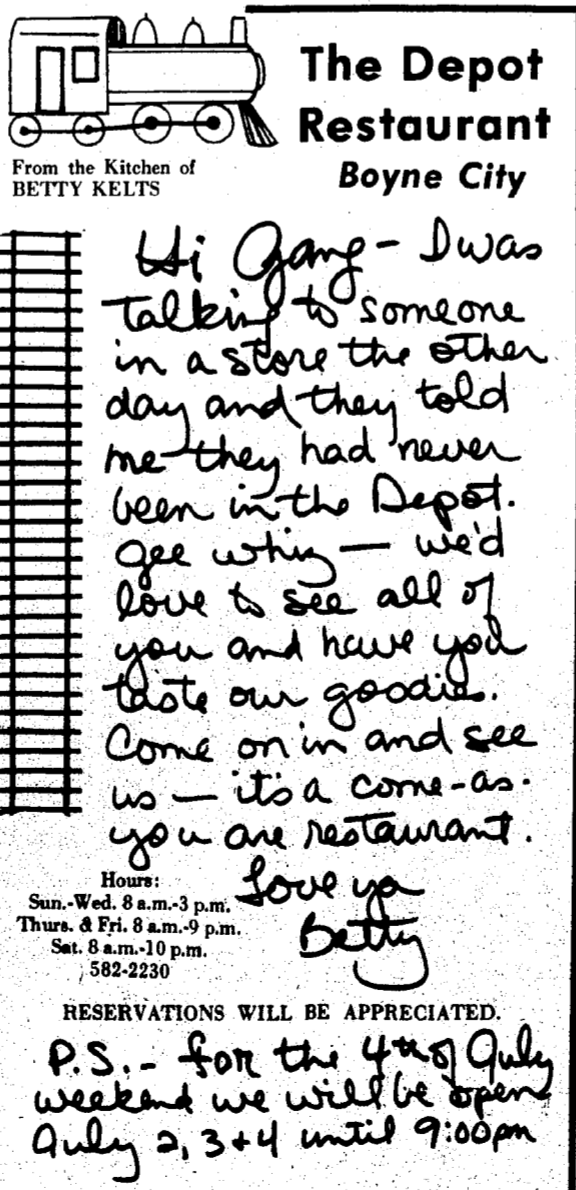 The Depot
Restaurant
Boyne City
From the Kitchen of
BETTY KELTS
Hi Gang - I was
talking to someone
in a store the other
day and they told
me they had never
been in the Depot.
Gee whiz — we'd
love to see all of
you and have you
taste our goodies.
Come on in and see
us — it's a come-as-
you are restaurant.
Love ya
Betty
Hours:
Sun.-Wed. 8 a.m.-3 p.m.
Thurs. & Fri. 8 a.m.-9 p.m.
Sat. 8 a.m.-10 p.m.
582-2230
RESERVATIONS WILL BE APPRECIATED.
P.S. - for the 4th of July
weekend we will be open
July 2, 3 + 4 until 9:00pm